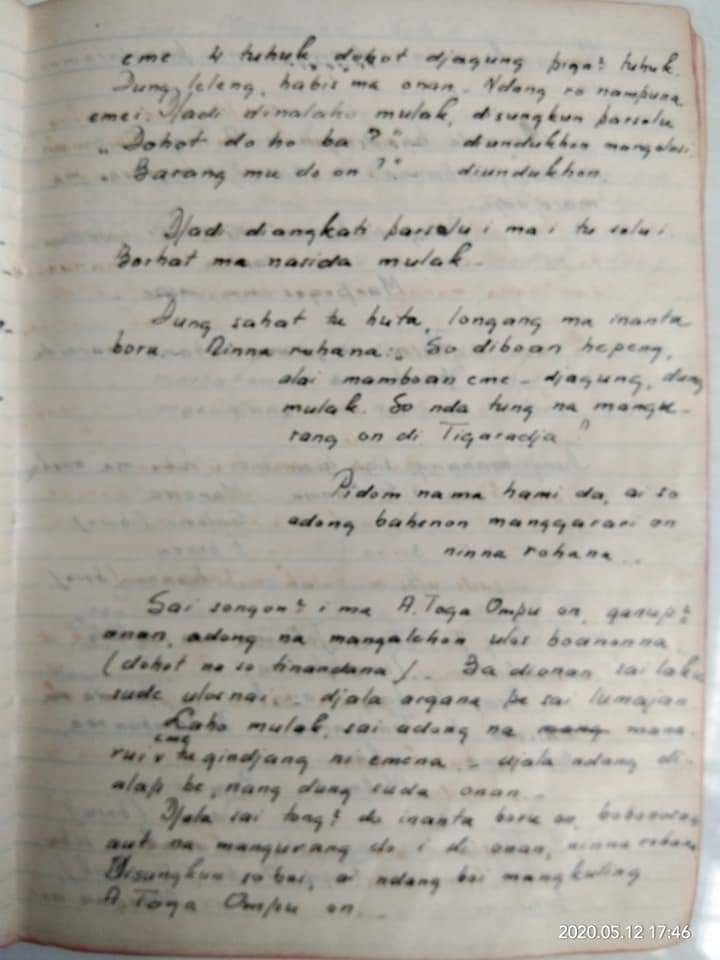 eme 4 tuhuk dohot djagung piga² tuhuk.
Dung leleng, habis ma onan. Ndang ro nampuna
eme i. Djadi dinalaho mulak, disungkun parsolu
"Dohot do ho ba?" diundukhon mangalusi.
"Barang mu do on?" diundukhon
Djadi diangkati parsolu i ma i tu solu i.
Borhat ma nasida mulak -
Dung sahat tu huta, longang ma inanta
boru. Ninna rohana: "So diboan hepeng,
alai mamboan eme - djagung, dung
mulak. So nda tung na mangu-
rang on di Tigaradja"
Pidom nama hami da, ai so
adong bahenon manggarari on
ninna rohana ..
Sai songon² i ma A. Toga Ompu on, ganup²
onan, adong na mangalehon ulos boanonna
(dohot na so tinandana). Ba dionan, sai laku
sude ulosnai. - djala argana pe sai lumajan.
Laho mulak, sai adong na mana-
rui eme tu gindjang ni emena - djala ndang di-
alap be, nang dung suda onan..
Djala sai tong² do inanta boru on,
aut na mangurang do i di onan, ninna rohana
Disungkun so boi, ai ndang boi mangkuling
A. Toga Ompu on..
2020.05.12 17:46